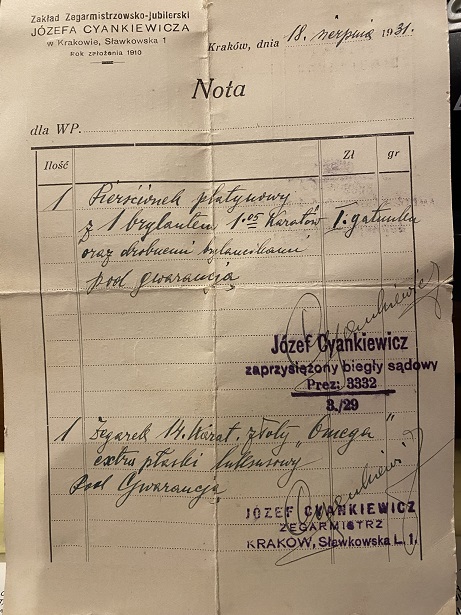 Zakład Zegarmistrzowsko-jubilerski
JÓZEFA CYANKIEWICZA
w Krakowie, Sławkowska 1
Rok założenia 1910
Kraków, dnia 18. sierpnia 1931.
Nota
dla WP.
Ilość Zł gr
1 Pierścionek platynowy
z 1 brylantem 1.05 Karatów I. gatunku
oraz drobnemi brylancikami
pod gwarancją
Józef Cyankiewicz
zaprzysiężony biegły sądowy
Prez: 3332
3./29
1 Zegarek 14. Karat. złoty „Omega"
extra płaski luksusowy
Pod Gwarancją
JÓZEF CYANKIEWICZ
ZEGARMISTRZ
KRAKÓW, Sławkowska L. 1.